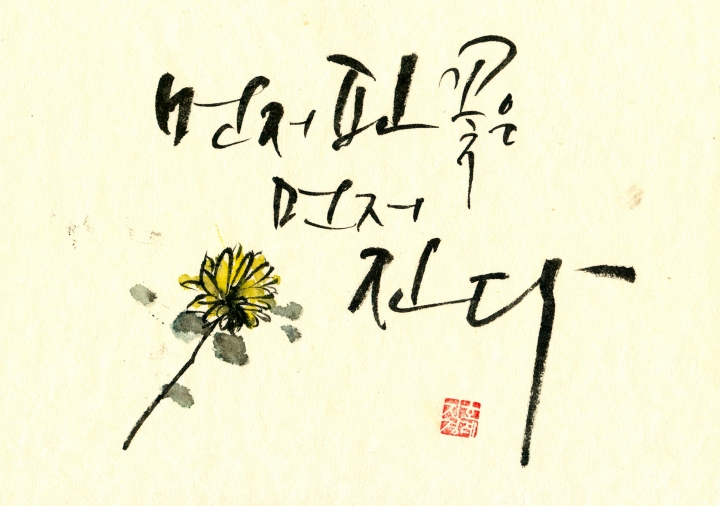 먼저 핀 꽃은
먼저
진다